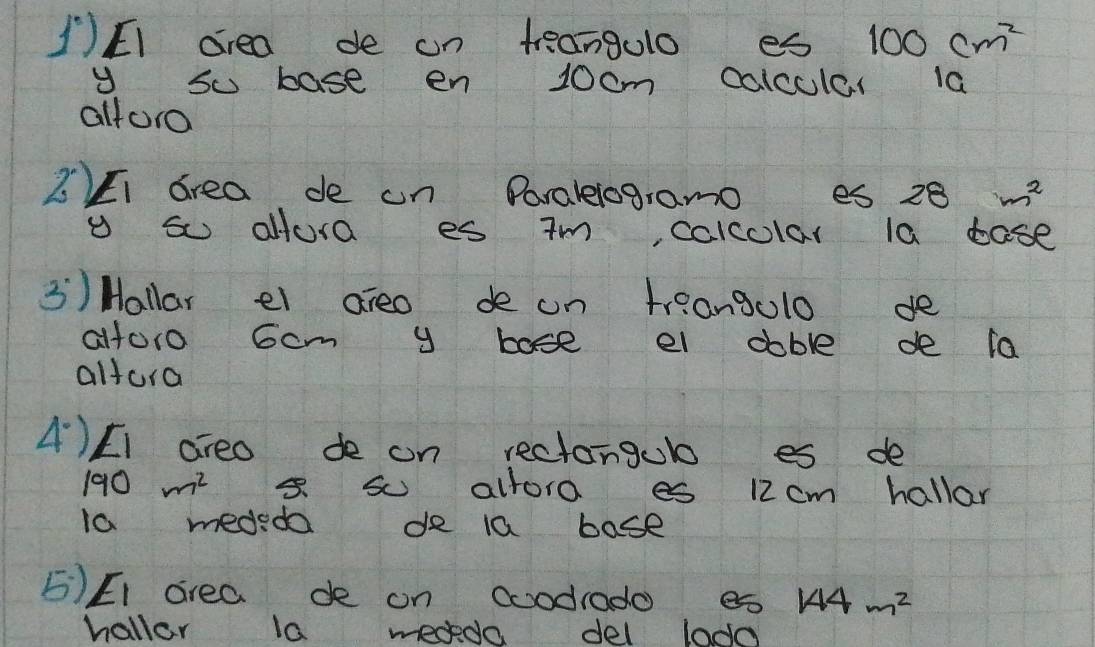 1°) El área de un triángulo es 100 cm²
y su base en 10cm calcular la
altura
2°) El área de un Paralelogramo es 28 m²
y su altura es 7m , calcular la base
3°) Hallar el área de un triangulo de
altura 6cm y base el doble de la
altura
4°) El área de un rectángulo es de
190 m² si su altura es 12 cm hallar
la medida de la base
5°) El área de un cuadrado es 144 m²
hallar la medida del lado